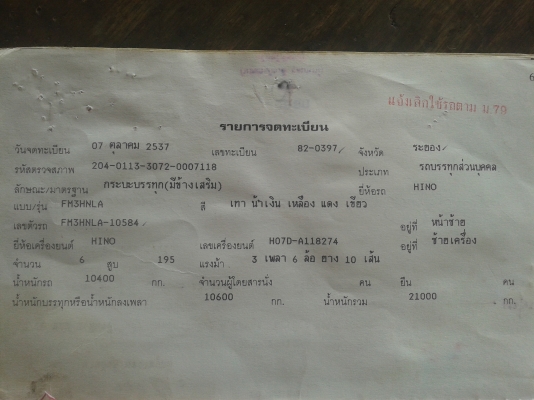 6
แจ้งเลิกใช้รถตาม ม.79
รายการจดทะเบียน
วันจดทะเบียน 07 ตุลาคม 2537 เลขทะเบียน 82-0397 จังหวัด ระยอง
รหัสตรวจสภาพ 204-0113-3072-0007118 ประเภท รถบรรทุกส่วนบุคคล
ลักษณะ/มาตรฐาน กระบะบรรทุก(มีข้างเสริม) ยี่ห้อรถ HINO
แบบ/รุ่น FM3HNLA สี เทา น้ำเงิน เหลือง แดง เขียว
เลขตัวรถ FM3HNLA-10584 อยู่ที่ หน้าซ้าย
ยี่ห้อเครื่องยนต์ HINO เลขเครื่องยนต์ H07D-A118274 อยู่ที่ ซ้ายเครื่อง
จำนวน 6 สูบ 195 แรงม้า 3 เพลา 6 ล้อ ยาง 10 เส้น
น้ำหนักรถ 10400 กก. จำนวนผู้โดยสารนั่ง คน ยืน คน
น้ำหนักบรรทุกหรือน้ำหนักลงเพลา 10600 กก. น้ำหนักรวม 21000 กก.